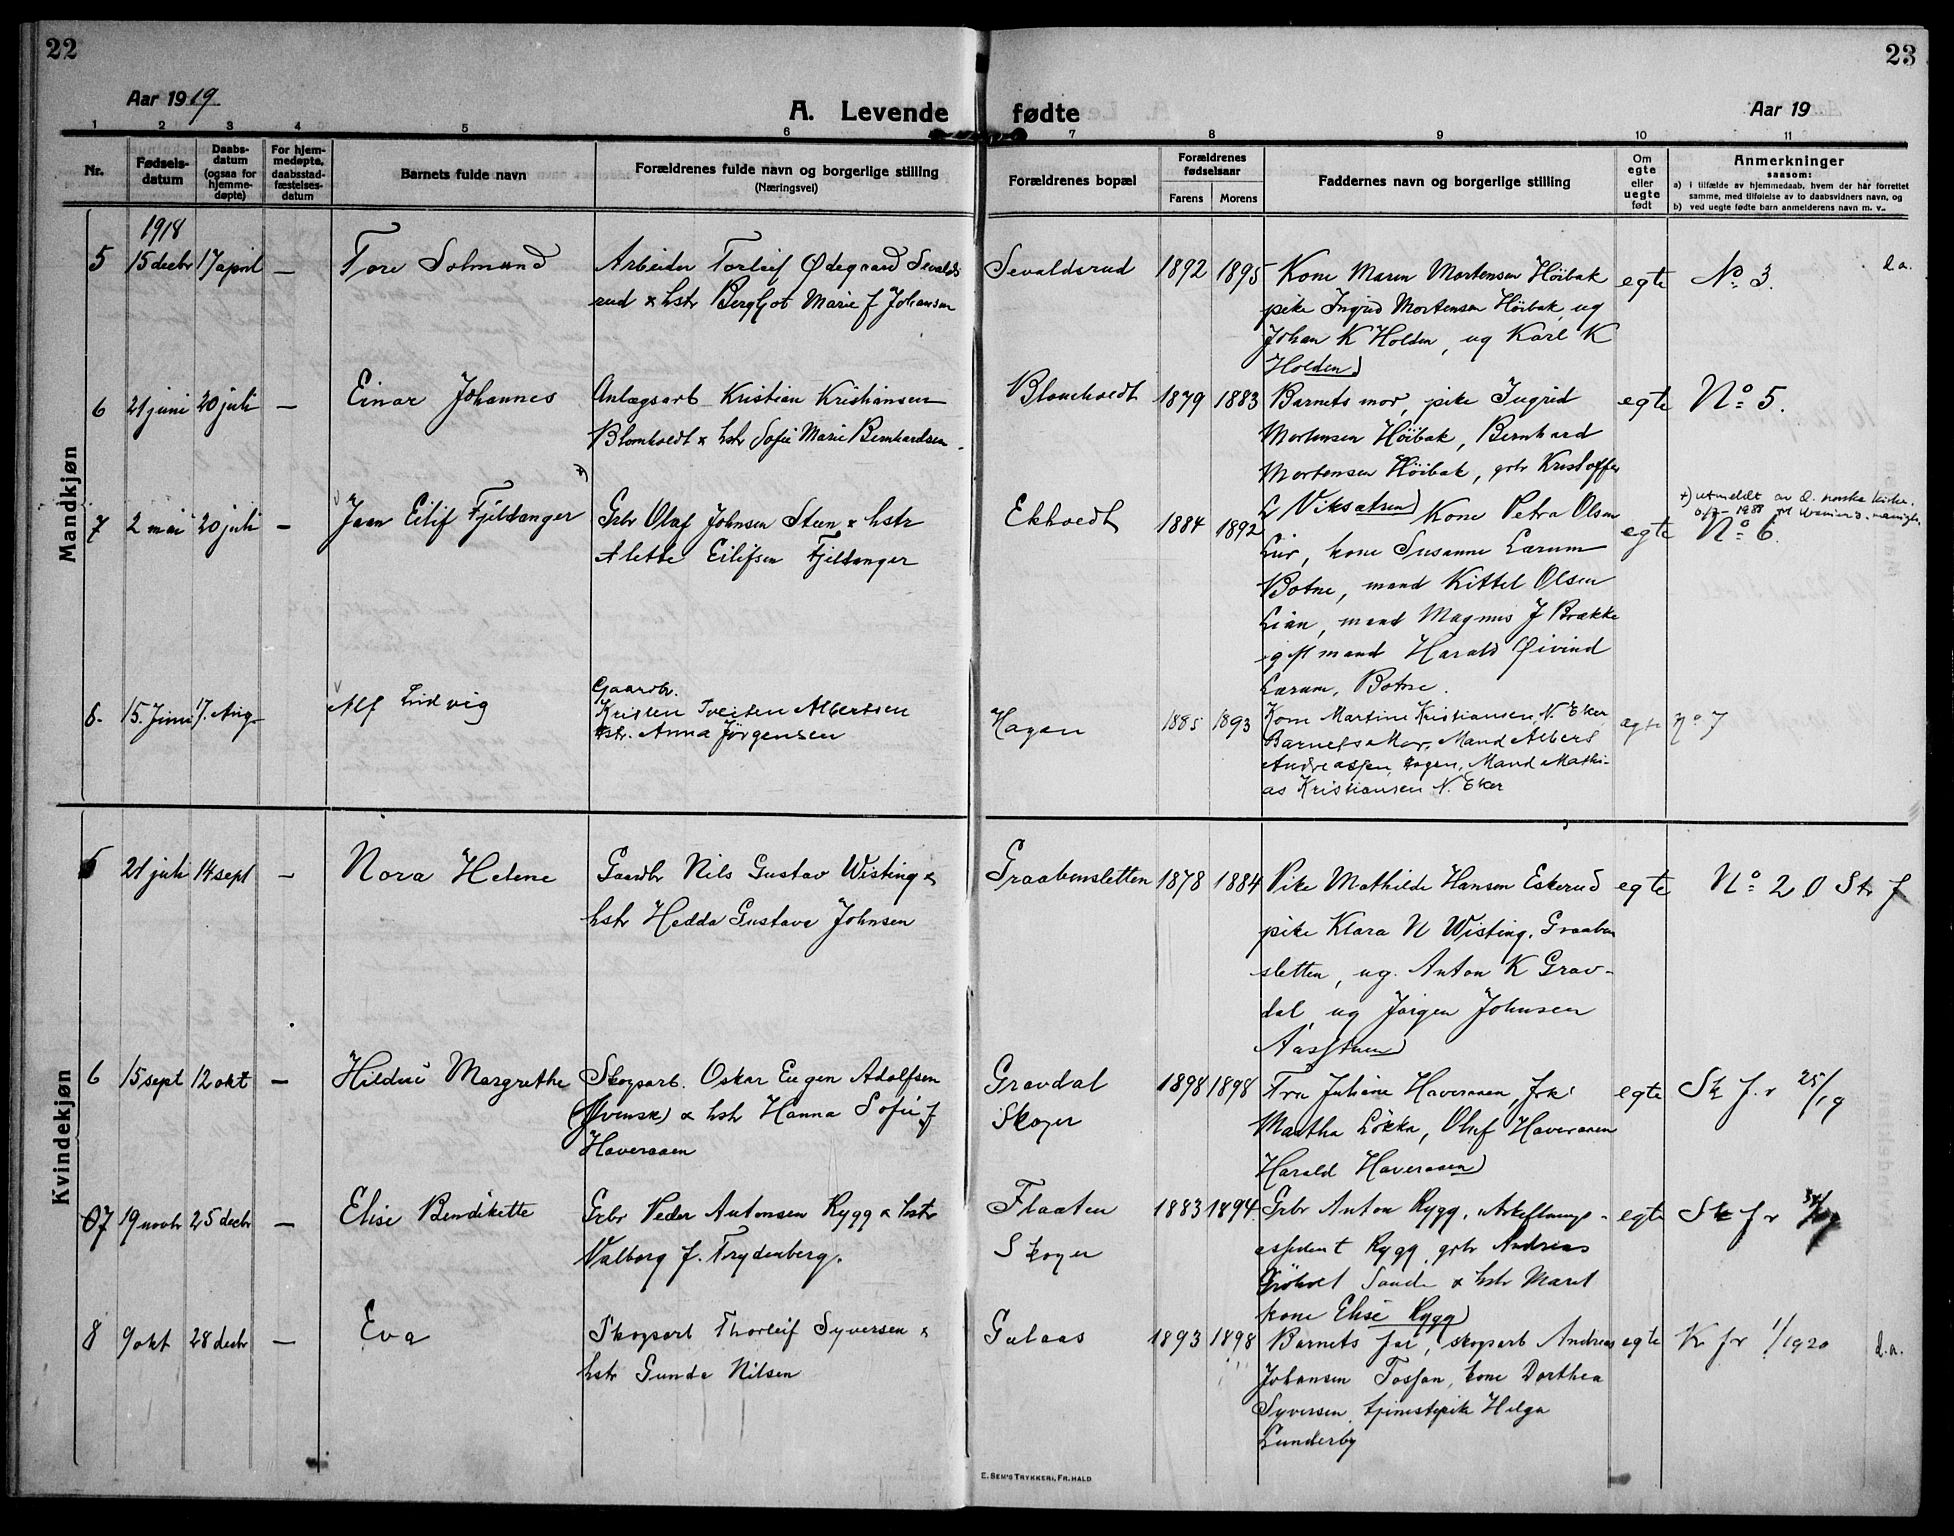 22
23
Aar 1919
A. Levende fødte
Aar 19
1 2 3 4 5 6 7 8 9 10 11
Nr.
Fødsels-
datum
Daabs-
datum
(ogsaa for
hjemme-
døpte)
For hjem-
medøpte,
daabsstad-
fæstelses-
datum
Barnets fulde navn
Forældrenes fulde navn og borgerlige stilling
(Næringsvei)
Forældrenes bopæl
Forældrenes
fødselsaar
Farens Morens
Faddernes navn og borgerlige stilling
Om
egte
eller
uegte
født
Anmerkninger
saasom:
a) i tilfælde av hjemmedaab, hvem der har forrettet
samme, med tilføielse av to daabsvidners navn, og
b) ved uegte fødte barn anmelderens navn m. v..
Mandkjøn
1918
5 15 decbr 17 april — Tore Solmund
Arbeider Torleif Ødegaard Sevalds
rud & hstr Bergljot Marie f Johansen
Sevaldsrud 1892 1895
Kone Maren Mortensen Höibak
pike Ingrid Mortensen Höibak, ug
Johan K Holden, ug Karl K
Holden
egte No 3. d.a.
6 21 juni 20 juli — Einar Johannes
Anlægsarb Kristian Kristiansen
Blomholdt & hstr Sofie Marie Bernhardsen.
Blomholdt 1879 1883
Barnets mor, pike Ingrid
Mortensen Höibak, Bernhard
Mortensen Höibak, gbr Kristoffer
L Viksatsen
egte No 5.
7 2 mai 20 juli — Jaan Eilif Fjeldanger x)
Gbr Olaf Johnsen Steen & hstr
Alette Eilifsen Fjeldanger
Ekholdt 1884 1892
Kone Petra Olsen
Lur, kone Susanne Lærum
Botne, mand Kittel Olsen
Lian, mand Magnus J Brække
gift mand Harald Øivind
Lærum, Botne.
egte No 6.
x) utmeldt av d. norske kirke.
8. 15. Juni 17. Aug. Alf Ludvig
Gaardbr.
Kristen Tveiten Albertsen
hstr. Anna Jörgensen
Hagen 1885 1893
Kone Martine Kristiansen, N. Eker
Barnets Mor, Mand Albert
Andreassen, Hagen, Mand Mathi-
as Kristiansen N. Eker
egte No 7
Kvindekjøn
5 21 juli 14 sept — Nora Helene
Gaardbr Nils Gustav Wisting &
hstr Hedda Gustava Johnsen
Graabensletten 1878 1884
Pike Mathilde Hansen Eskerud
pike Klara N Wisting, Graaben
sletten, ug. Anton K Grav-
dal, ug Jörgen Johnsen
egte No 20 Str f
6 15 sept 12 okt — Margrethe
Skogsarb. Oskar Eugen Adolfsen
(Svensk) & hstr Hanna Sofie f
Haveraaen
Gravdal
Skoger
1898 1898
Fru Juliane Haveraaen, frk
Martha Lökka, Oluf Haveraaen
Harald Haveraaen
egte Sk f. r 25/19
7 19 novbr 25 decbr — Elise Bendikette
Gbr Peder Antonsen Rygg & hstr
Valborg f. Frydenberg.
Flaaten
Skoger
1883 1894
Gbr Anton Rygg,
Rygg, gbr Andreas
Sande & hstr Maret
kone Elise Rygg
egte Sk f r
8 9 okt 28 decbr — Eva
Skogsarb Thorleif Syversen &
hstr Gunda Nilsen
Galaas 1893 1898
Barnets far, skogsarb Andreas
Johansen Fossan, kone Dorthea
Syversen, tjenestepike Helga
Lunderby
egte K f r 1/1920 d.a.
E. SEM'S TRYKKERI, FR. HALD